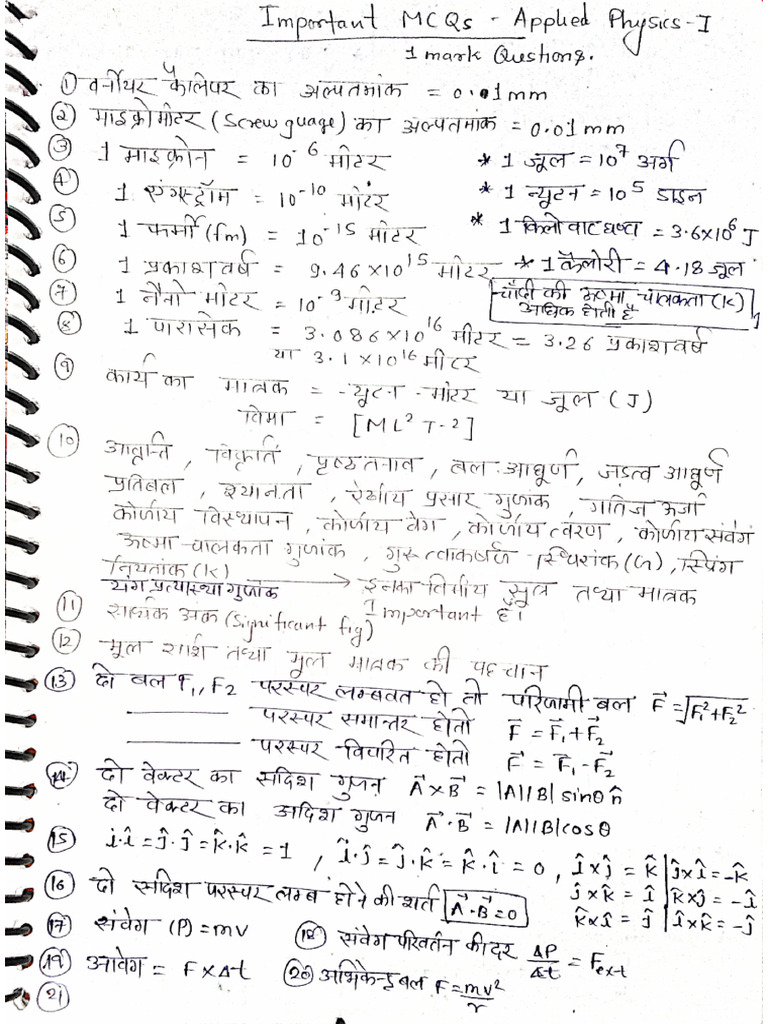 Important MCQs - Applied Physics-I
1 mark Questions.
① वर्नीयर कैलिपर का अल्पतमांक = 0.01mm
② माइक्रोमीटर (Screw guage) का अल्पतमांक = 0.01 mm
③ 1 माइक्रोन = 10⁻⁶ मीटर * 1 जूल = 10⁷ अर्ग
④ 1 एंगस्ट्रॉम = 10⁻¹⁰ मीटर * 1 न्यूटन = 10⁵ डाइन
⑤ 1 फर्मी (fm) = 10⁻¹⁵ मीटर * 1 किलोवाट घण्टा = 3.6×10⁶ J
⑥ 1 प्रकाशवर्ष = 9.46×10¹⁵ मीटर * 1 कैलोरी = 4.18 जूल
⑦ 1 नैनो मीटर = 10⁻⁹ मीटर चाँदी की ऊष्मा चालकता (K) अधिक होती है
⑧ 1 पारसेक = 3.086×10¹⁶ मीटर = 3.26 प्रकाशवर्ष
या 3.1×10¹⁶ मीटर
⑨ कार्य का मात्रक = न्यूटन-मीटर या जूल (J)
विमा = [ML²T-2]
⑩ आवृत्ति, विकृति, पृष्ठ तनाव, बल आघूर्ण, जड़त्व आघूर्ण
प्रतिबल, श्यानता, रेखीय प्रसार गुणांक, गतिज ऊर्जा
कोणीय विस्थापन, कोणीय वेग, कोणीय त्वरण, कोणीय संवेग
ऊष्मा चालकता गुणांक, गुरुत्वाकर्षण स्थिरांक (G), स्प्रिंग
नियतांक (K)
यंग प्रत्यास्था गुणांक → इनका विमीय सूत्र तथा मात्रक
Important है।
⑪ सार्थक अंक (Significant fig)
⑫ मूल राशि तथा मूल मात्रक की पहचान
⑬ दो बल F₁, F₂ परस्पर लम्बवत हो तो परिणामी बल F⃗ = √F₁²+F₂²
——— परस्पर समान्तर हो तो F⃗ = F⃗₁+F⃗₂
——— परस्पर विपरित हो तो F⃗ = F⃗₁-F⃗₂
⑭ दो वेक्टर का सदिश गुणन A⃗×B⃗ = |A||B| sinθ n̂
दो वेक्टर का अदिश गुणन A⃗·B⃗ = |A||B|cosθ
⑮ î·î = ĵ·ĵ = k̂·k̂ = 1, î·ĵ = ĵ·k̂ = k̂·î = 0, î×ĵ = k̂ | ĵ×î = -k̂
ĵ×k̂ = î | k̂×ĵ = -î
k̂×î = ĵ | î×k̂ = -ĵ
⑯ दो सदिश परस्पर लम्ब होने की शर्त A⃗·B⃗ = 0
⑰ संवेग (P) = mv ⑱ संवेग परिवर्तन की दर ΔP/Δt = Fext
⑲ आवेग = F×Δt ⑳ अभिकेन्द्र बल F = mv²/r
㉑